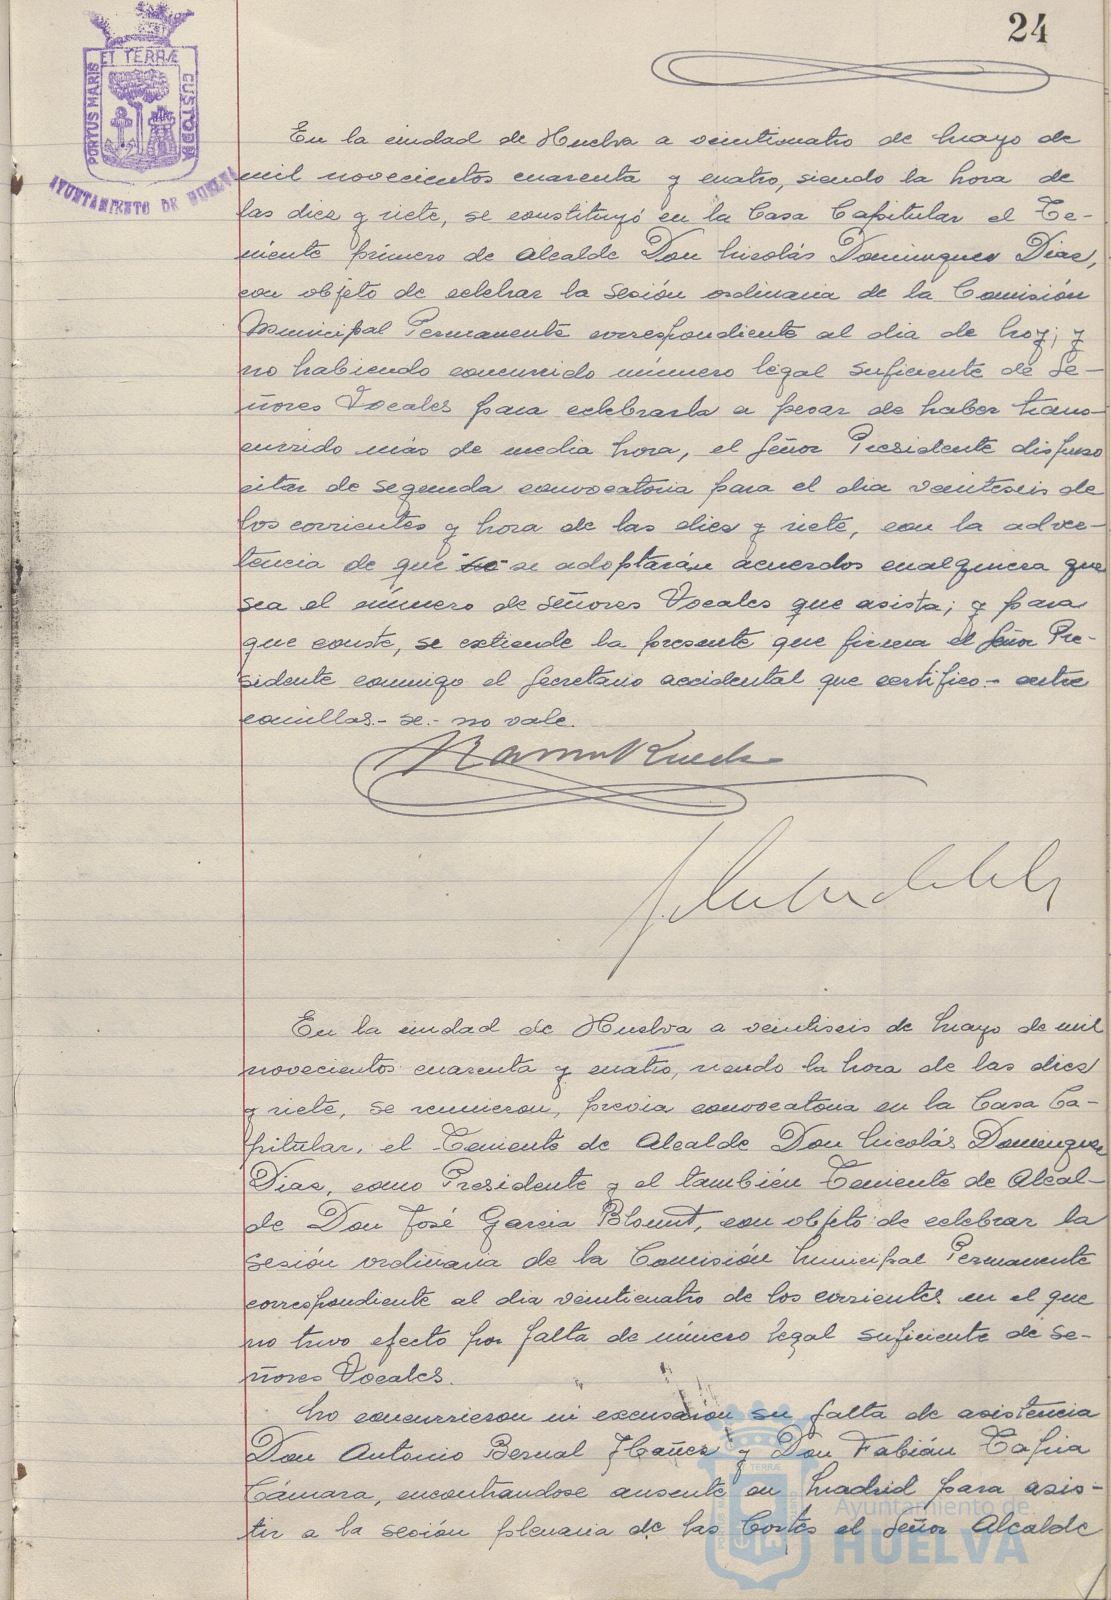 24
ET TERRÆ
PORTUS MARIS
CUSTODIA
AYUNTAMIENTO DE HUELVA
En la ciudad de Huelva a veinticuatro de Mayo de
mil novecientos cuarenta y cuatro, siendo la hora de
las diez y siete, se constituyó en la Casa Capitular el Te-
niente primero de Alcalde Don Nicolás Dominguez Diaz,
con objeto de celebrar la sesión ordinaria de la Comisión
Municipal Permanente correspondiente al dia de hoy; y
no habiendo concurrido número legal suficiente de Se-
ñores Vocales para celebrarla a pesar de haber trans-
currido más de media hora, el Señor Presidente dispuso
citar de segunda convocatoria para el dia veintiseis de
los corrientes y hora de las diez y siete, con la adver-
tencia de que "se" se adoptarán acuerdos cualquiera que
sea el número de Señores Vocales que asista; y para
que conste, se extiende la presente que firma el Señor Pre-
sidente conmigo el Secretario accidental que certifico.- entre
comillas.- se.- no vale.
En la ciudad de Huelva a veintiseis de Mayo de mil
novecientos cuarenta y cuatro, siendo la hora de las diez
y siete, se reunieron, previa convocatoria en la Casa Ca-
pitular, el Teniente de Alcalde Don Nicolás Dominguez
Diaz, como Presidente y el también Teniente de Alcal-
de Don José Garcia Blount, con objeto de celebrar la
sesión ordinaria de la Comisión Municipal Permanente
correspondiente al dia veinticuatro de los corrientes en el que
no tuvo efecto por falta de número legal suficiente de Se-
ñores Vocales.
No concurrieron ni excusaron su falta de asistencia
Don Antonio Bernal Ibañez y Don Fabián Tapia
Cámara, encontrandose ausente en Madrid para asis-
tir a la sesión plenaria de las Cortes el Señor Alcalde
Ayuntamiento de
HUELVA